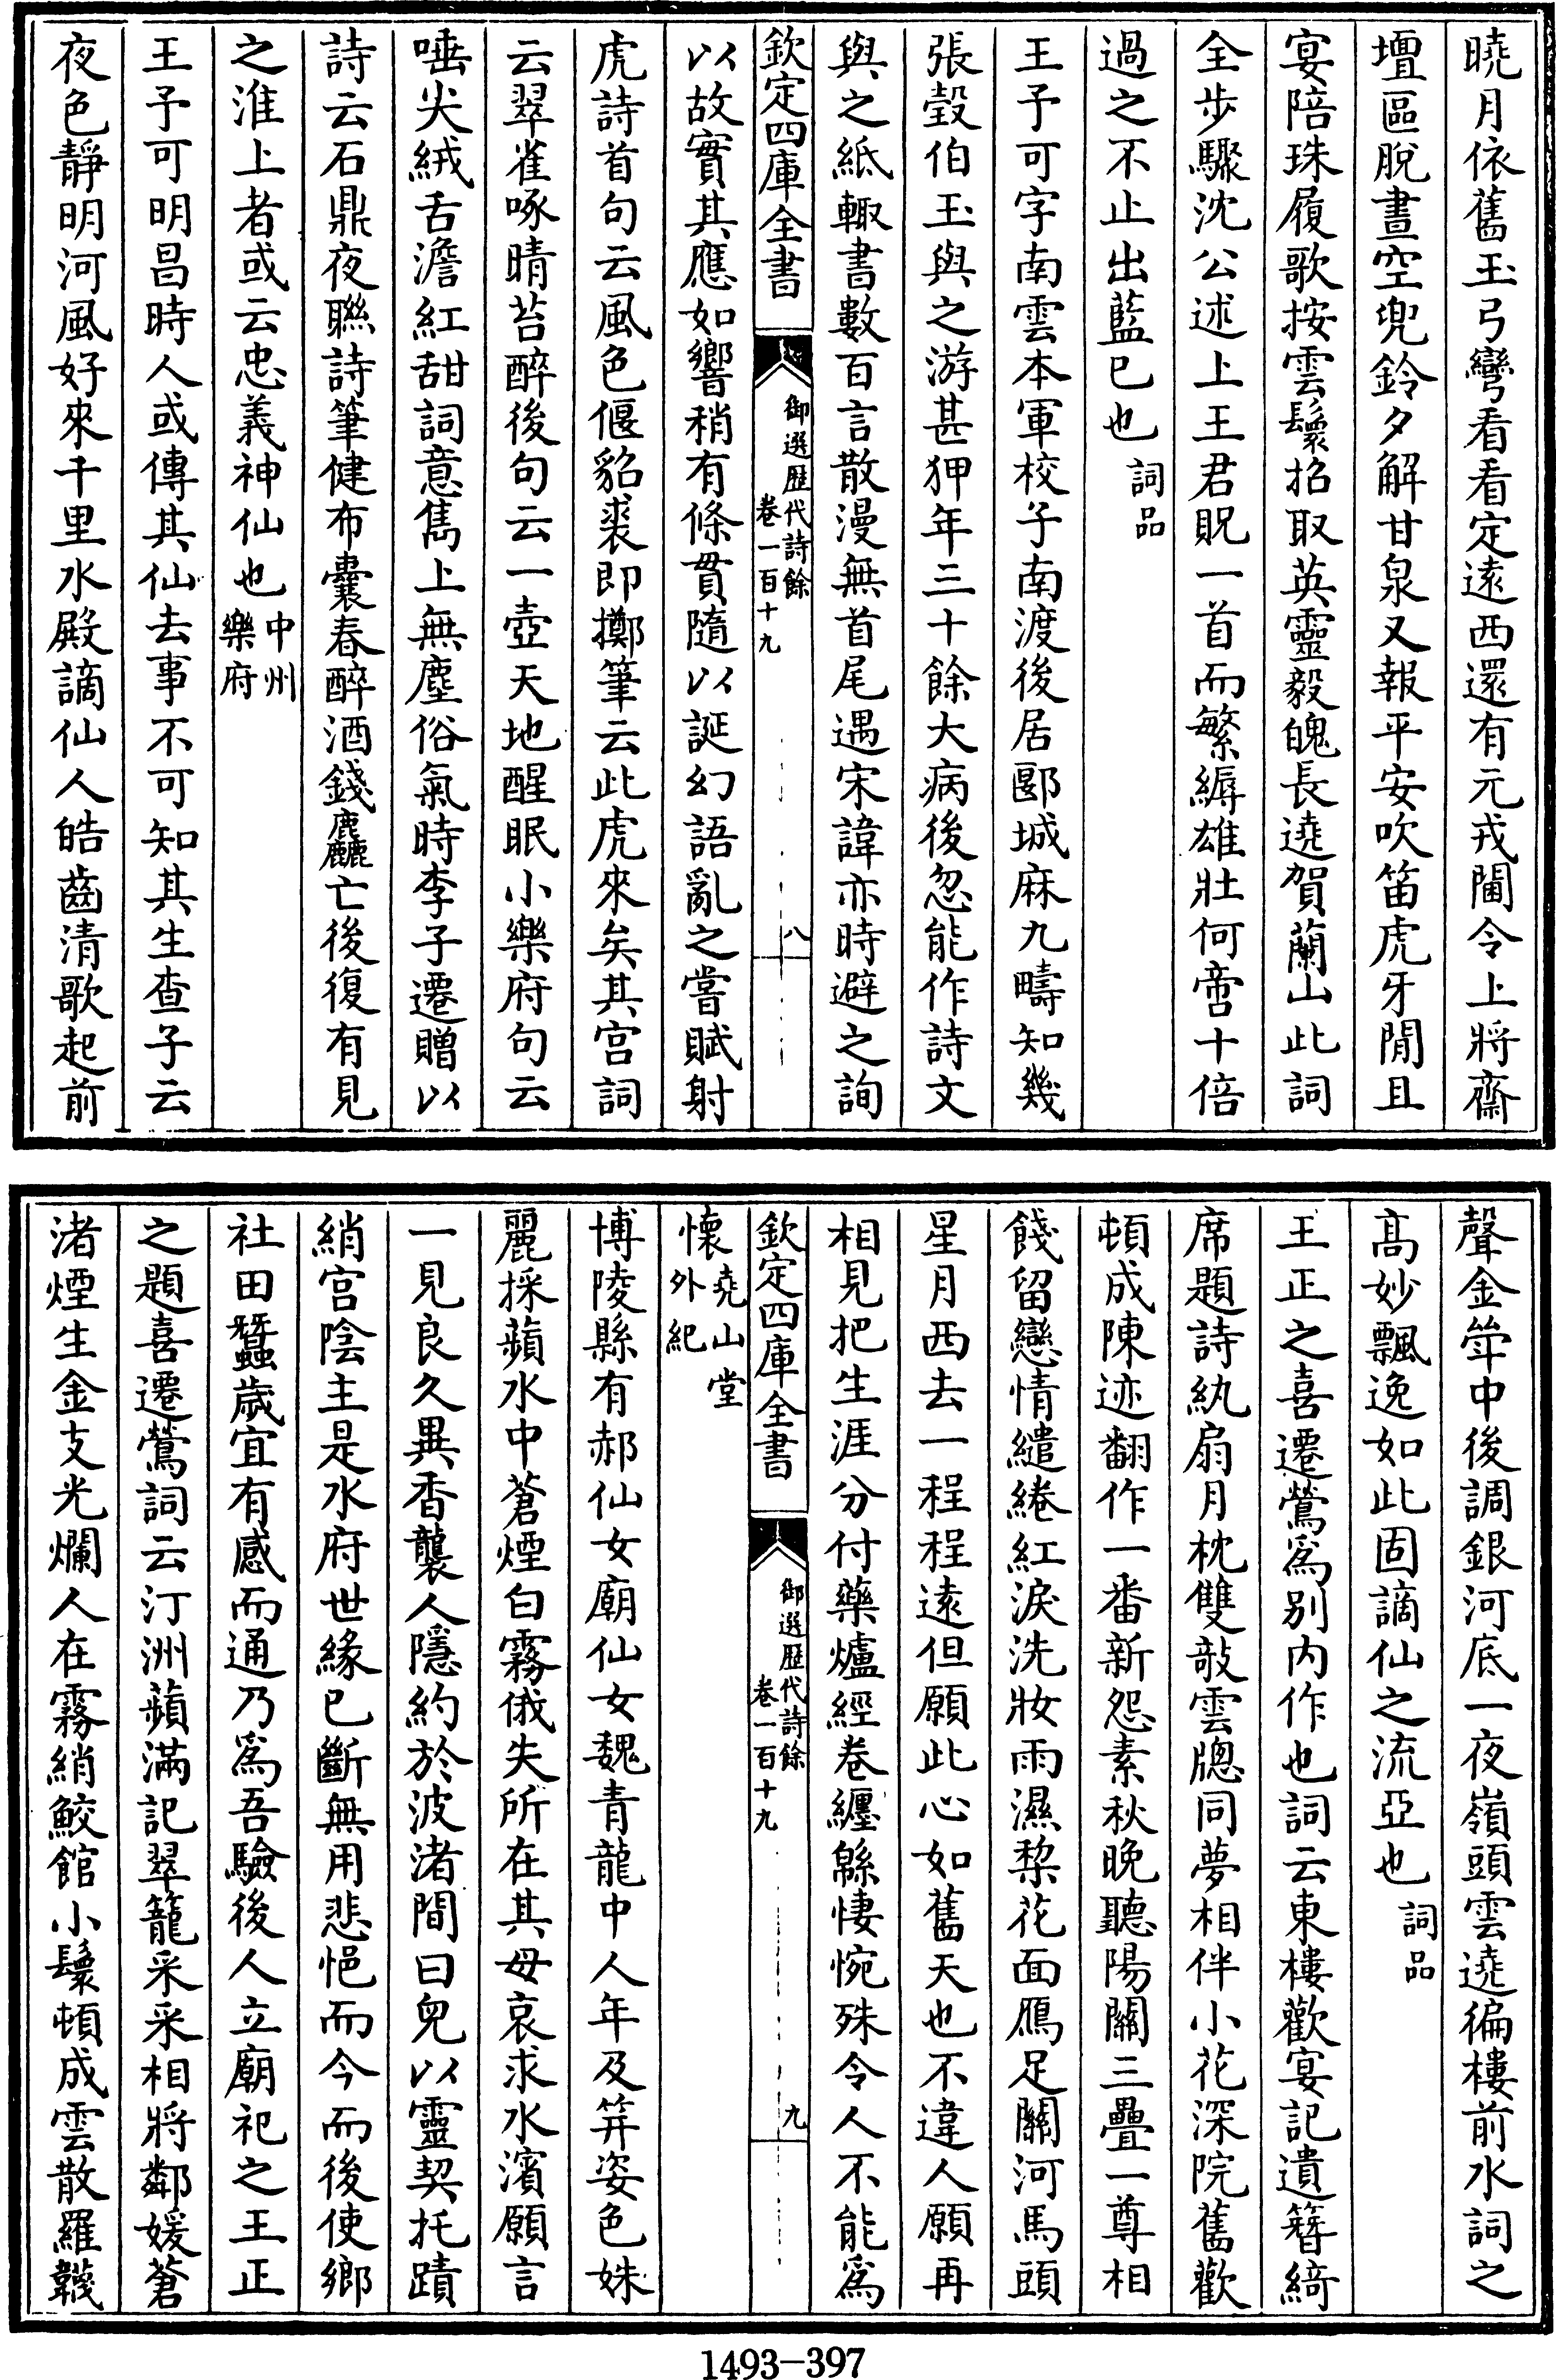 曉月依舊玉弓彎看看定逺西還有元戎閫令上將齋
壇區脫晝空兜鈴夕解甘泉又報平安吹笛虎牙閒且
宴陪珠履歌按雲鬟招取英靈毅魄長遶賀蘭山此詞
全步驟沈公述上王君貺一首而繁縟雄壯何啻十倍
過之不止出藍已也詞品
王予可字南雲本軍校子南渡後居郾城麻九疇知幾
張瑴伯玉與之游甚狎年三十餘大病後忽能作詩文
與之紙輙書數百言散漫無首尾遇宋諱亦時避之詢
欽定四庫全書
御選歴代詩餘
卷一百十九
八
以故實其應如響稍有條貫隨以誕幻語亂之嘗賦射
虎詩首句云風色偃貂裘即擲筆云此虎來矣其宫詞
云翠雀啄晴苔醉後句云一壺天地醒眠小樂府句云
唾尖絨舌澹紅甜詞意雋上無塵俗氣時李子遷贈以
詩云石鼎夜聯詩筆健布囊春醉酒錢麤亡後復有見
之淮上者或云忠義神仙也中州
樂府
王予可明昌時人或傳其仙去事不可知其生查子云
夜色靜明河風好來千里水殿謫仙人皓齒清歌起前
聲金斚中後調銀河底一夜嶺頭雲遶徧樓前水詞之
髙妙飄逸如此固謫仙之流亞也詞品
王正之喜遷鶯為别内作也詞云東樓歡宴記遺簪綺
席題詩紈扇月枕雙敧雲牕同夢相伴小花深院舊歡
頓成陳迹翻作一番新怨素秋晚聽陽關三疊一尊相
餞留戀情繾綣紅淚洗妝雨濕棃花面鴈足關河馬頭
星月西去一程程逺但願此心如舊天也不違人願再
相見把生涯分付藥爐經卷纒緜悽惋殊令人不能為
欽定四庫全書
御選歴代詩餘
卷一百十九
九
懷堯山堂
外紀
博陵縣有郝仙女廟仙女魏青龍中人年及笄姿色姝
麗採蘋水中蒼煙白霧俄失所在其母哀求水濱願言
一見良久異香襲人隱約於波渚間曰兒以靈契托蹟
綃宫陰主是水府世緣已斷無用悲悒而今而後使鄉
社田蠶歲宜有感而通乃為吾驗後人立廟祀之王正
之題喜遷鶯詞云汀洲蘋滿記翠籠采采相將鄰媛蒼
渚煙生金支光爛人在霧綃鮫館小鬟頓成雲散羅韈
1493-397